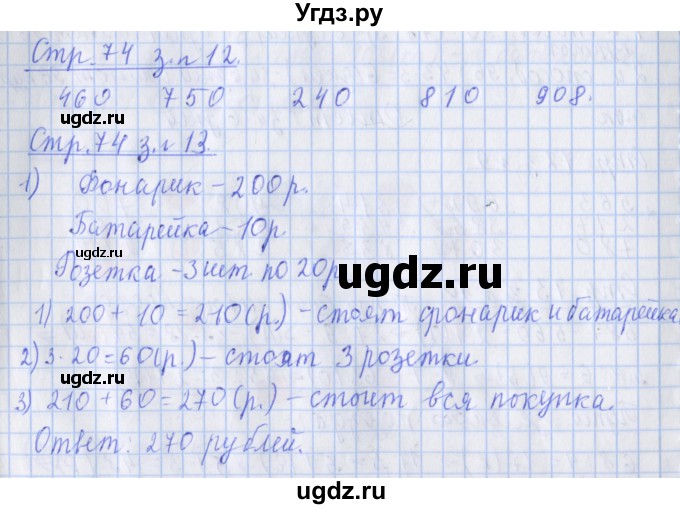 Угдз.ру
Стр. 74 з.№ 12.
460 750 240 810 908.
ugdz.ru ugdz.ru
Стр. 74 з.№ 13.
1) Фонарик – 200 р.
Батарейка – 10р.
Розетка – 3 шт по 20р
ugdz.ru
1) 200 + 10 = 210 (р.) – стоят фонарик и батарейка
2) 3 · 20 = 60 (р) – стоят 3 розетки.
3) 210 + 60 = 270 (р.) – стоит вся покупка.
Ответ: 270 рублей.
ugdz.ru ugdz.ru
ugdz.ru